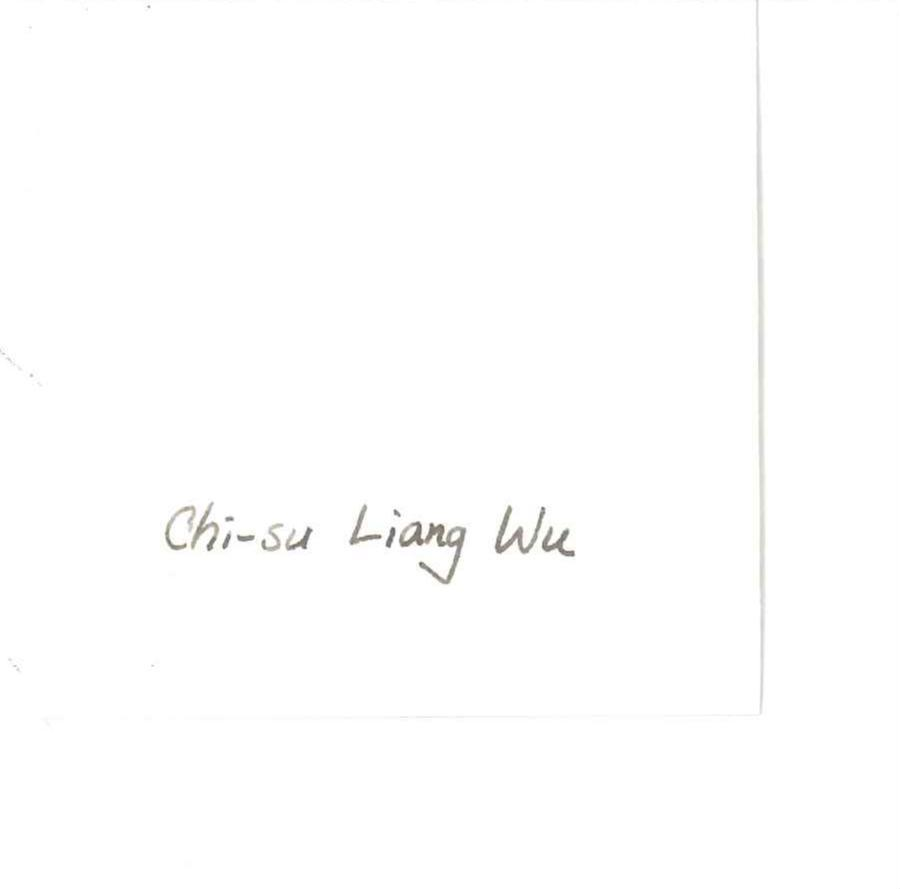 Chi-su Liang Wu